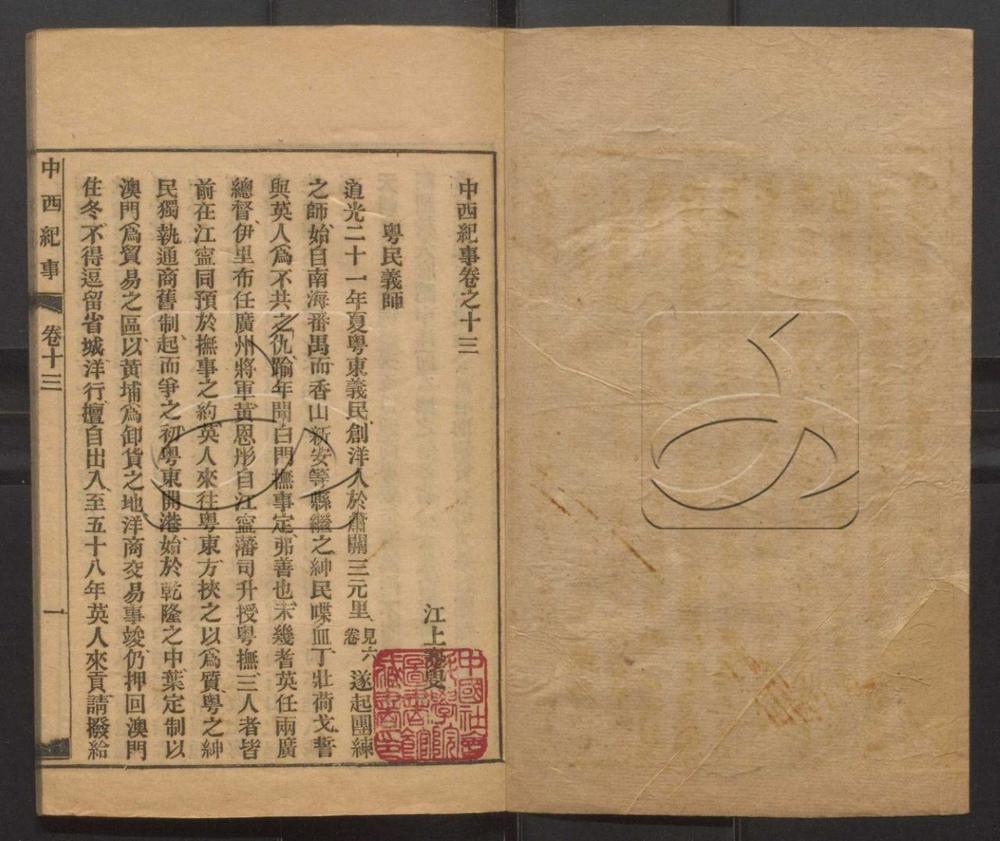 中西紀事卷之十三
江上蹇叟
粵民義師
道光二十一年夏粵東義民創洋人於蕭關三元里見六卷遂起團練
之師始自南海番禺而香山新安等縣繼之紳民喋血丁壯荷戈誓
與英人爲不共之仇踰年聞白門撫事定弗善也未幾耆英任兩廣
總督伊里布任廣州將軍黃恩彤自江寧藩司升授粵撫三人者皆
前在江寧同預於撫事之約英人來往粵東方挾之以爲質粵之紳
民獨執通商舊制起而爭之初粵東開港始於乾隆之中葉定制以
澳門爲貿易之區以黃埔爲卸貨之地洋商交易事竣仍押回澳門
住冬不得逗留省城洋行擅自出入至五十八年英人來貢請撥給
中西紀事
卷十三
一
中國社會科學院圖書館藏書印